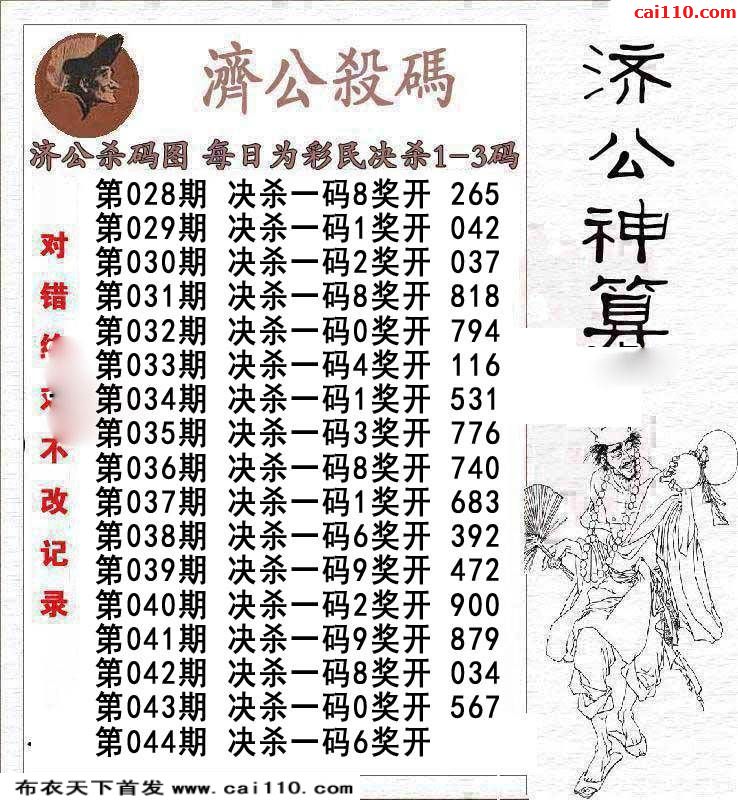 cai110.com
濟公殺碼
济公杀码图 每日为彩民决杀1-3码
第028期 决杀一码8奖开 265
第029期 决杀一码1奖开 042
第030期 决杀一码2奖开 037
第031期 决杀一码8奖开 818
第032期 决杀一码0奖开 794
第033期 决杀一码4奖开 116
第034期 决杀一码1奖开 531
第035期 决杀一码3奖开 776
第036期 决杀一码8奖开 740
第037期 决杀一码1奖开 683
第038期 决杀一码6奖开 392
第039期 决杀一码9奖开 472
第040期 决杀一码2奖开 900
第041期 决杀一码9奖开 879
第042期 决杀一码8奖开 034
第043期 决杀一码0奖开 567
第044期 决杀一码6奖开
对错不改记录
济公神算
布衣天下首发 www.cai110.com